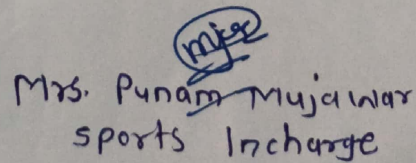 Mrs. Punam Mujawar
sports Incharge